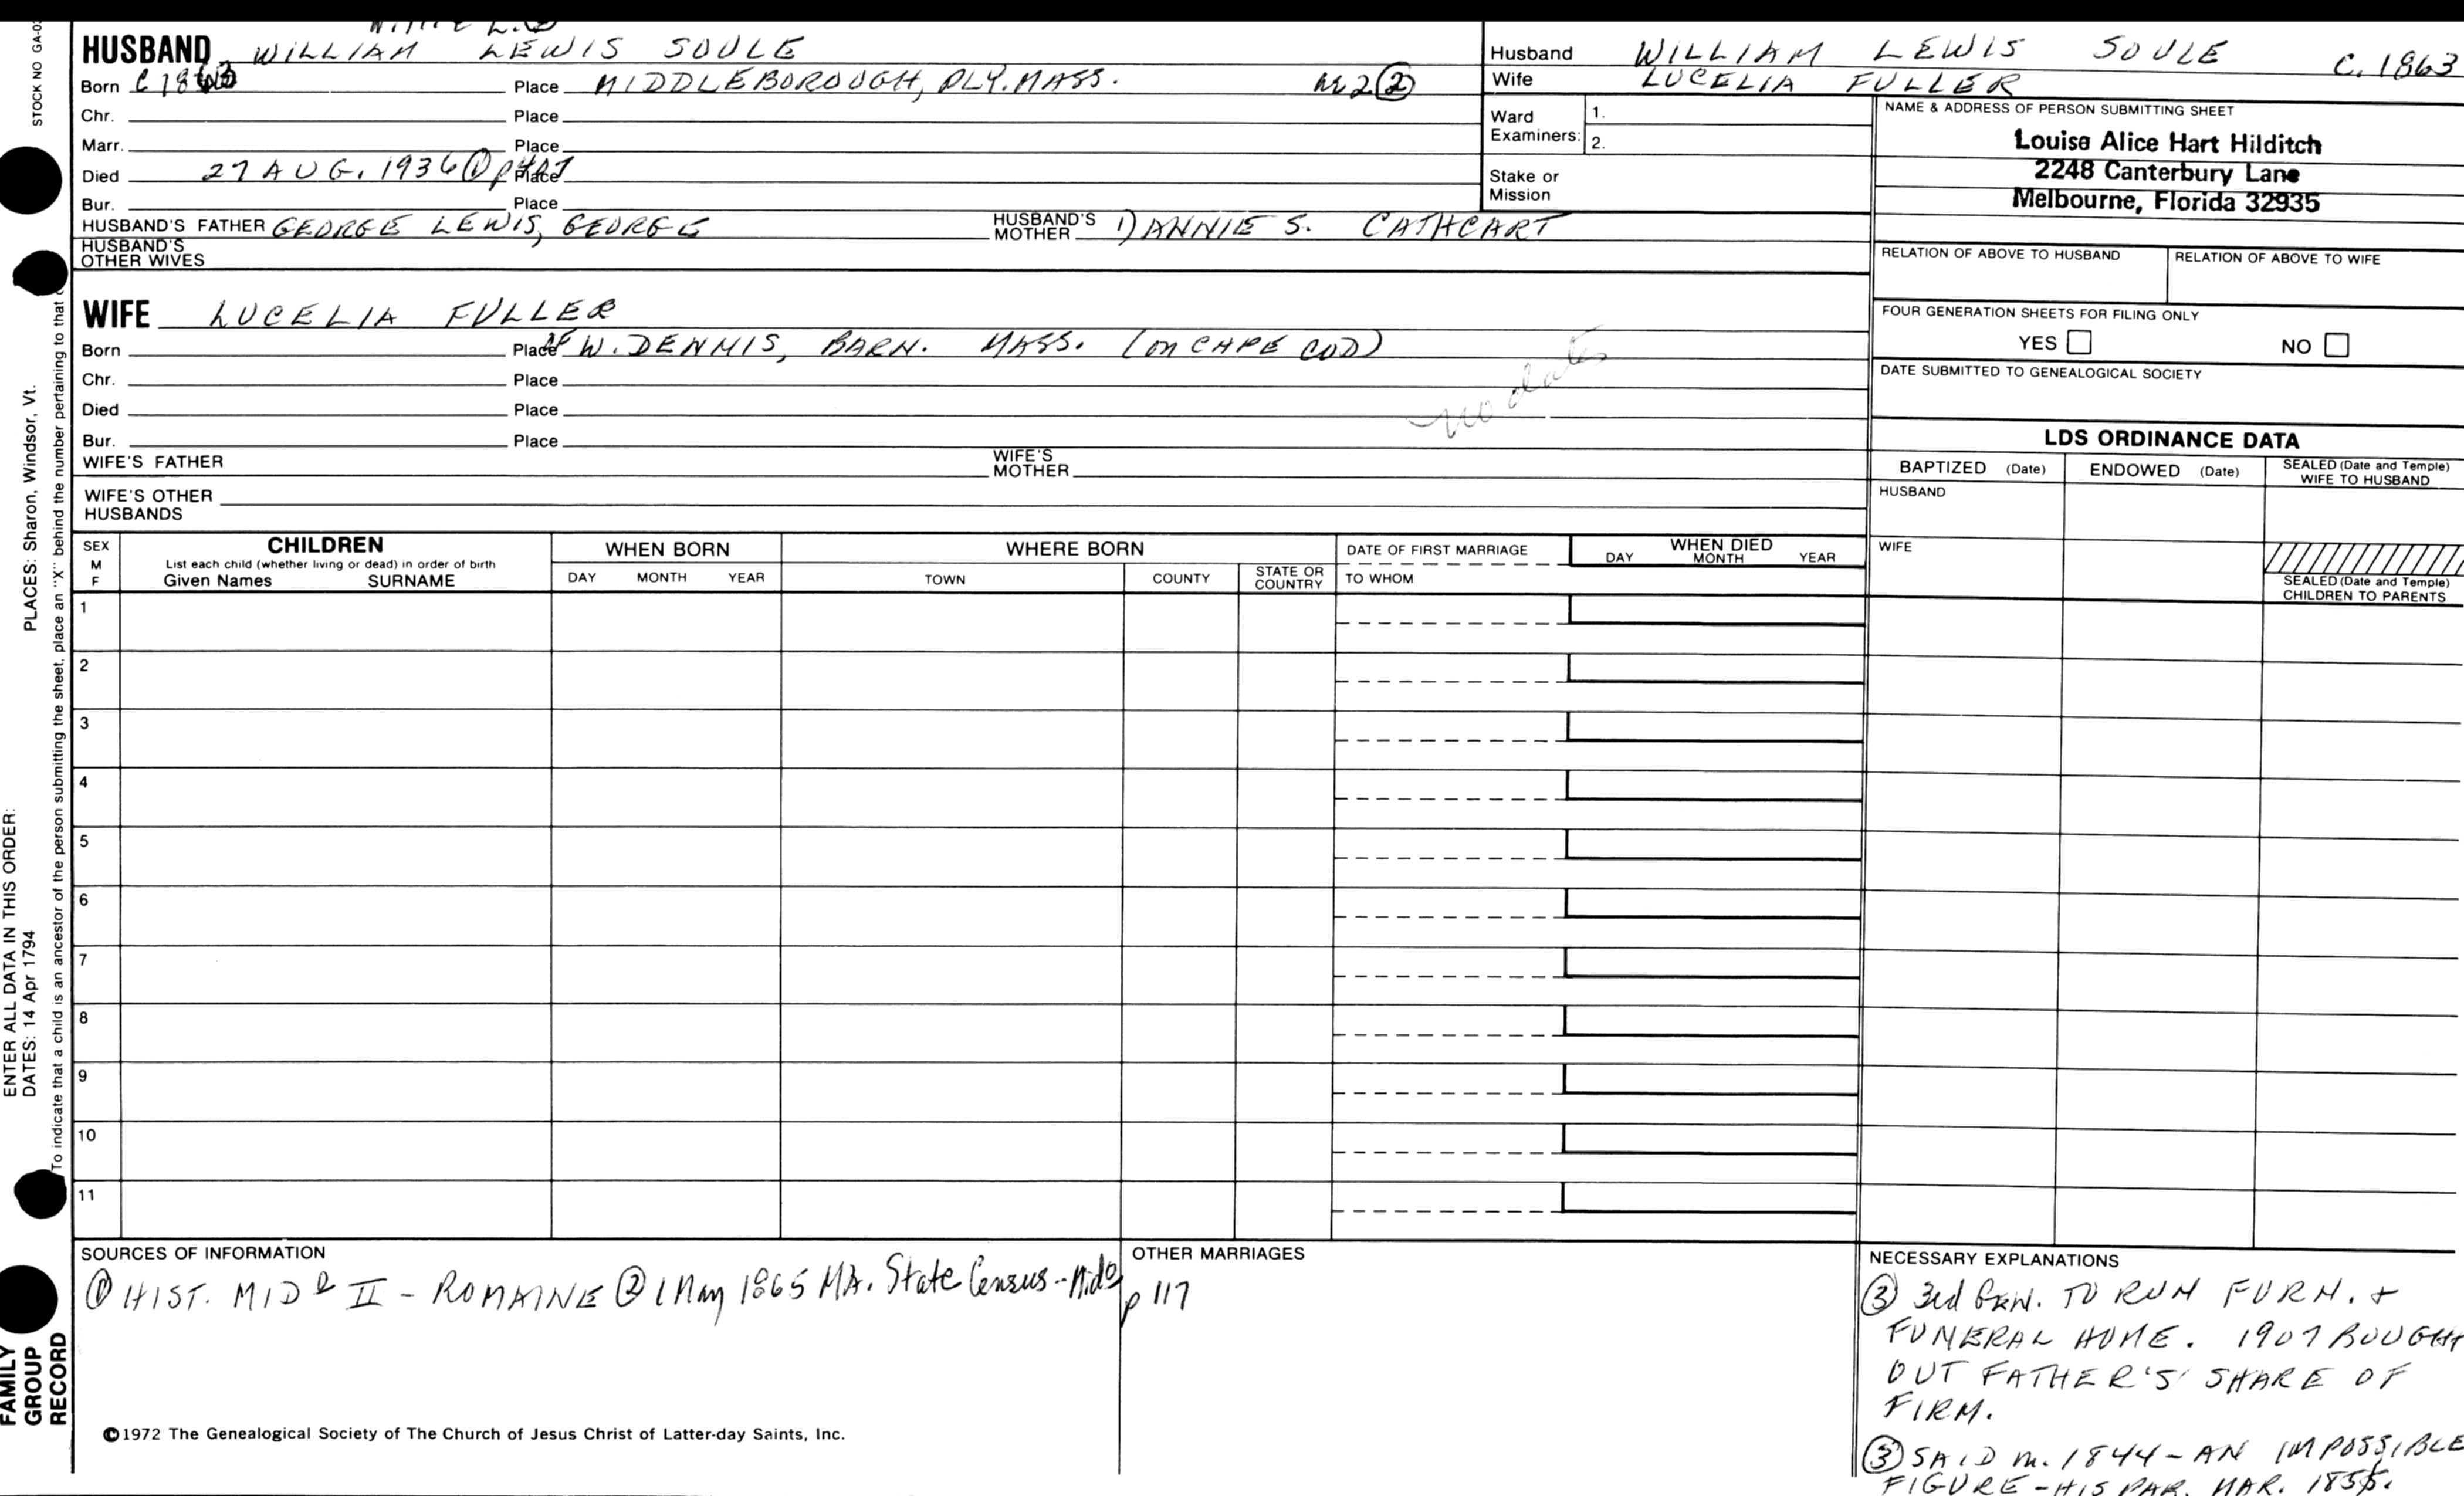 STOCK NO GA-03
Willie L. ②
HUSBAND WILLIAM LEWIS SOULE
Born C 1863 Place MIDDLEBOROUGH, PLY. MASS. ②
Chr. Place
Marr. Place
Died 27 AUG. 1936 ① Place
Bur. Place
HUSBAND'S FATHER GEORGE LEWIS, GEORGE HUSBAND'S MOTHER 1) ANNIE S. CATHCART
HUSBAND'S OTHER WIVES
WIFE LUCELIA FULLER
Born Place OF W. DENNIS, BARN. MASS. (on CAPE COD)
no dates
Chr. Place
Died Place
Bur. Place
WIFE'S FATHER WIFE'S MOTHER
WIFE'S OTHER HUSBANDS
Husband WILLIAM LEWIS SOULE C. 1863
Wife LUCELIA FULLER
Ward Examiners: 1.
2.
Stake or Mission
NAME & ADDRESS OF PERSON SUBMITTING SHEET
Louise Alice Hart Hilditch
2248 Canterbury Lane
Melbourne, Florida 32935
RELATION OF ABOVE TO HUSBAND RELATION OF ABOVE TO WIFE
FOUR GENERATION SHEETS FOR FILING ONLY
YES NO
DATE SUBMITTED TO GENEALOGICAL SOCIETY
LDS ORDINANCE DATA
BAPTIZED (Date) ENDOWED (Date) SEALED (Date and Temple) WIFE TO HUSBAND
HUSBAND
WIFE
SEALED (Date and Temple) CHILDREN TO PARENTS
SEX M F
CHILDREN
List each child (whether living or dead) in order of birth
Given Names SURNAME
WHEN BORN
DAY MONTH YEAR
WHERE BORN
TOWN COUNTY STATE OR COUNTRY
DATE OF FIRST MARRIAGE
TO WHOM
WHEN DIED
DAY MONTH YEAR
1
2
3
4
5
6
7
8
9
10
11
SOURCES OF INFORMATION
① HIST. MID II - ROMAINE ② 1 May 1865 MA. State Census - Mido p 117
OTHER MARRIAGES
NECESSARY EXPLANATIONS
③ 3rd GEN. TO RUN FURN. +
FUNERAL HOME. 1907 BOUGHT
OUT FATHER'S SHARE OF
FIRM.
③ SAID m. 1844 - AN IMPOSSIBLE
FIGURE - HIS PAR. MAR. 1855.
©1972 The Genealogical Society of The Church of Jesus Christ of Latter-day Saints, Inc.
FAMILY
GROUP
RECORD
ENTER ALL DATA IN THIS ORDER:
DATES: 14 Apr 1794 PLACES: Sharon, Windsor, Vt.
To indicate that a child is an ancestor of the person submitting the sheet, place an "X" behind the number pertaining to that